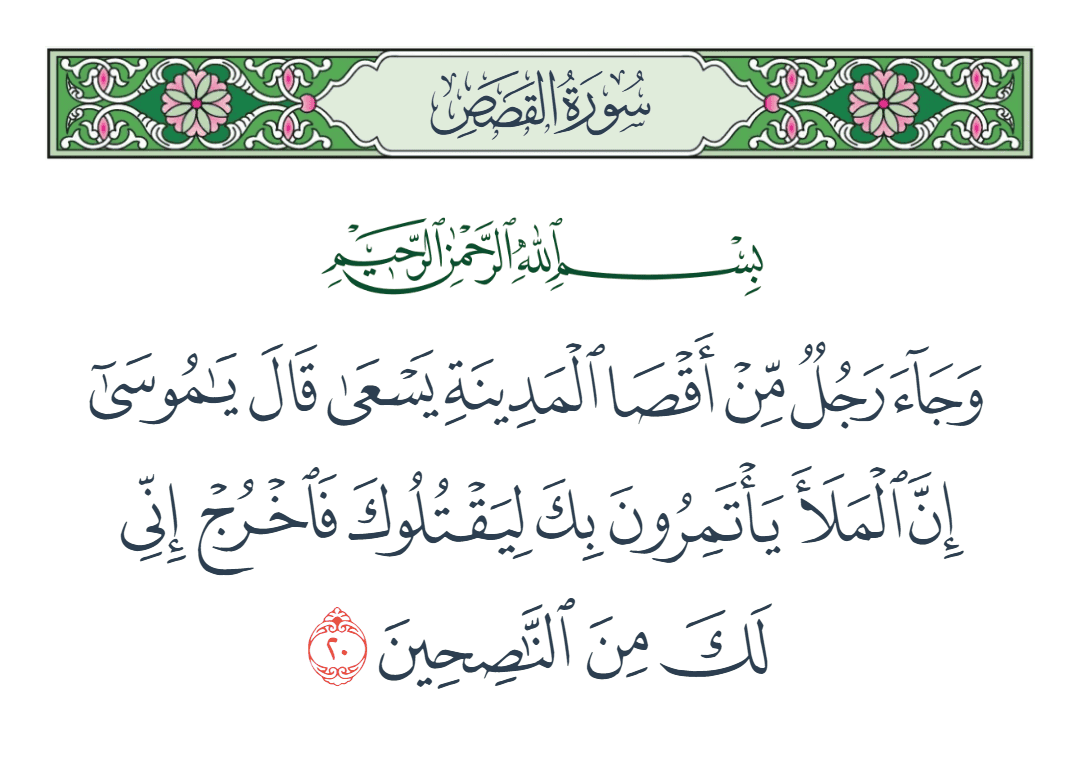 سُورَةُ القَصَصِ
بِسْمِ ٱللَّهِ ٱلرَّحْمَٰنِ ٱلرَّحِيمِ
وَجَآءَ رَجُلٌ مِّنْ أَقْصَا ٱلْمَدِينَةِ يَسْعَىٰ قَالَ يَٰمُوسَىٰٓ
إِنَّ ٱلْمَلَأَ يَأْتَمِرُونَ بِكَ لِيَقْتُلُوكَ فَٱخْرُجْ إِنِّى
لَكَ مِنَ ٱلنَّٰصِحِينَ ٢٠